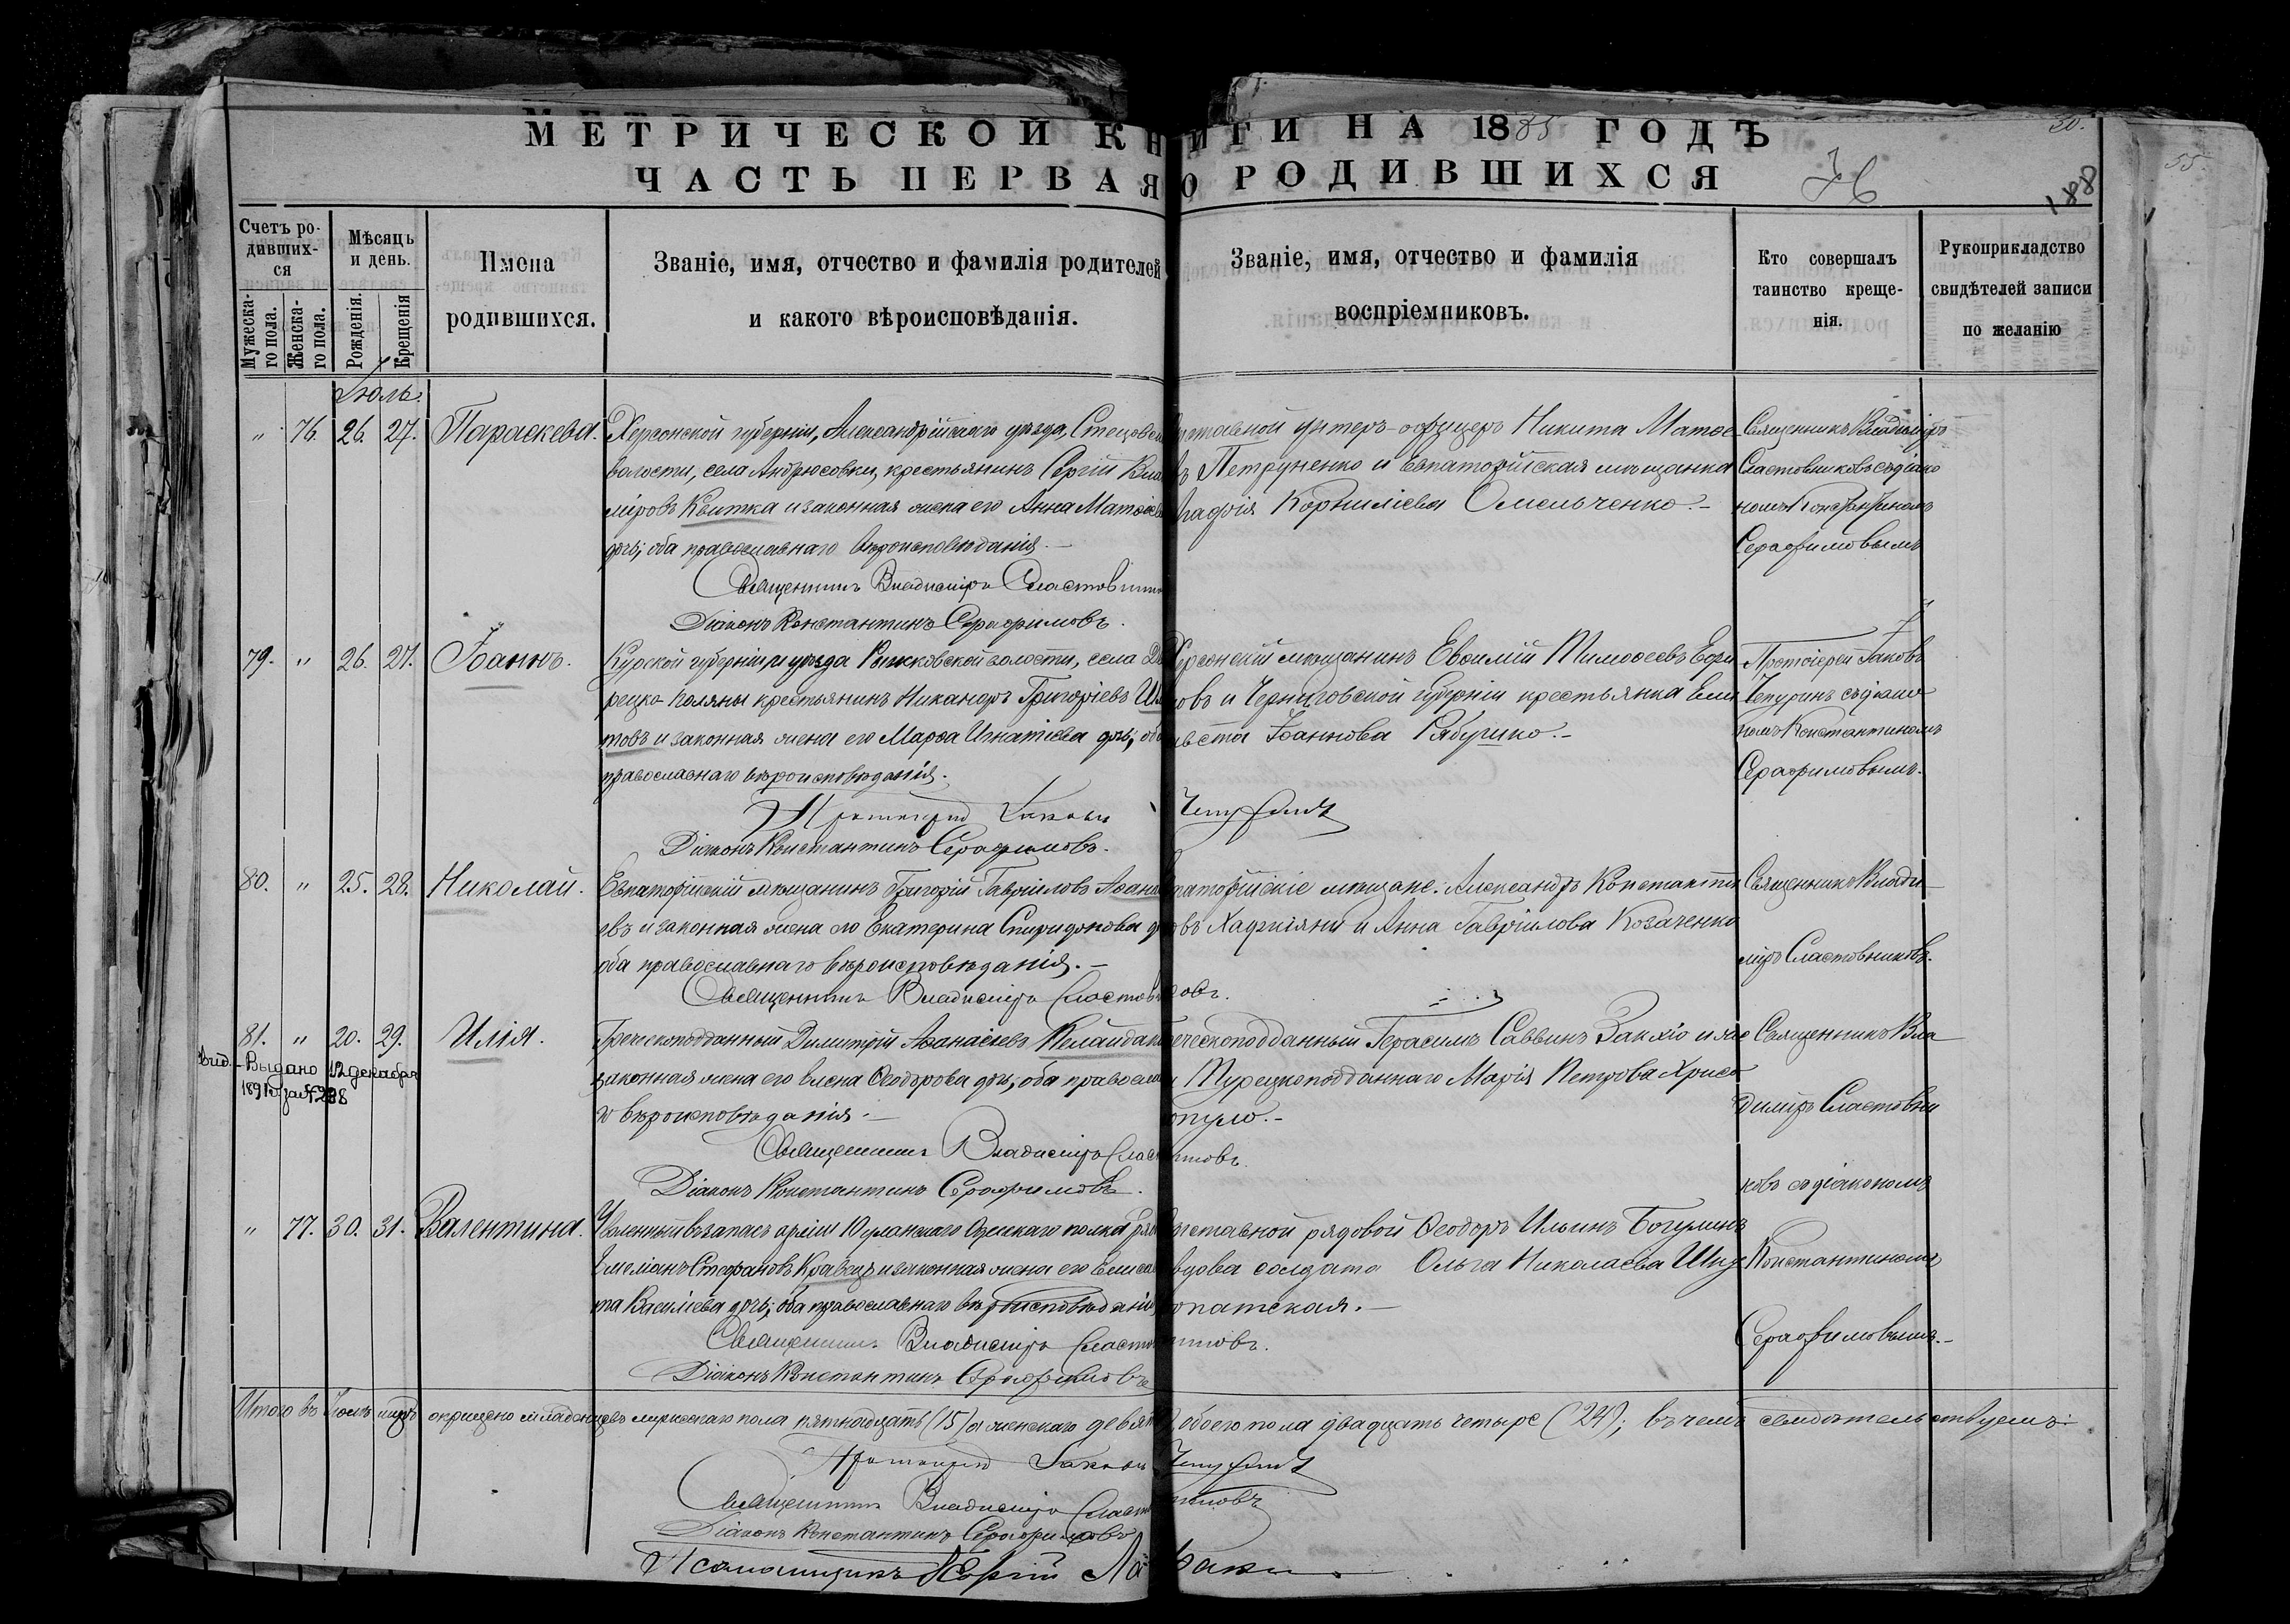 МЕТРИЧЕСКОЙ КНИГИ НА 1885 ГОДЪ
ЧАСТЬ ПЕРВАЯ О РОДИВШИХСЯ
30.
55.
188
Счетъ родившихся
Мужескаго пола.
Женскаго пола.
Мѣсяцъ и день.
Рожденія.
Крещенія
Имена родившихся.
Званіе, имя, отчество и фамилія родителей
и какого вѣроисповѣданія.
Званіе, имя, отчество и фамилія
воспріемниковъ.
Кто совершалъ
таинство креще-
нія.
Рукоприкладство
свидѣтелей записи
по желанію
Іюль.
" 76. 26. 27. Параскева.
Херсонской губерніи, Александрійскаго уѣзда,
волости, села Андрюсовки, крестьянинъ Сергій
міровъ Квитка и законная жена его Анна Матѳеева
дочь; оба православнаго вѣроисповѣданія.—
Священникъ Владиміръ
Діаконъ Константинъ Серафимовъ.
унтеръ-офицеръ Никита Матѳе
въ Петруненко и Евпаторійская мѣщанка
Корниліева Омельченко.—
Священникъ Владиміръ
Сластовниковъ съ діако
номъ Константиномъ
Серафимовымъ
79. " 26. 27. Іоаннъ.
Курской губерніи и уѣзда Рышковской волости, села
рецко-Поляны крестьянинъ Никаноръ Григоріевъ
товъ и законная жена его Марѳа Игнатіева дочь; оба
православнаго вѣроисповѣданія.
Протоіерей Іаковъ Чепуринъ
Діаконъ Константинъ Серафимовъ.
Херсонскій мѣщанинъ Евѳимій Тимоѳеевъ
овъ и Черниговской губерніи крестьянка Ели
авета Іоаннова Рябушко.—
Протоіерей Іаковъ
Чепуринъ съ діако
номъ Константиномъ
Серафимовымъ.
80. " 25. 28. Николай.
Евпаторійскій мѣщанинъ Григорій Гавріиловъ Аѳана
евъ и законная жена его Екатерина Спиридонова
оба православнаго вѣроисповѣданія.—
Священникъ Владиміръ Сластовниковъ.
мѣщане: Александръ Константи
овъ и Анна Гавріилова Козаченко
Священникъ Влади—
міръ Сластовниковъ.
81. " 20. 29. Илія.
Выдано 12 декабря
1891 г. за №298
Греческоподданный Димитрій Аѳанасіевъ
законная жена его Елена Ѳеодорова дочь, оба правосла
го вѣроисповѣданія.—
Священникъ Владиміръ Сластовниковъ.
Діаконъ Константинъ Серафимовъ.
Греческоподданный Герасимъ Саввинъ
Турецкоподданнаго Марія Петрова Хрисо
опуло.—
Священникъ Вла
диміръ Сластовни
ковъ съ діакономъ
" 77. 30. 31. Валентина.
Уволенный въ запасъ арміи 10 уланскаго Одесскаго полка
Стефановъ Кравецъ и законная жена его Елиса
та Василіева дочь; оба православнаго вѣроисповѣданія
Священникъ Владиміръ Сластовниковъ.
Діаконъ Константинъ Серафимовъ
отставной рядовой Ѳеодоръ Ильинъ
вдова солдата Ольга Николаева
опатская.—
Константиномъ
Серафимовымъ.—
Итого въ Іюлѣ м-цѣ окрещено младенцевъ мужескаго пола пятнадцать (15) а женскаго девять обоего пола двадцать четыре (24); въ чемъ свидѣтельствуемъ:
Протоіерей Іаковъ Чепуринъ
Священникъ Владиміръ Сластовниковъ
Діаконъ Константинъ Серафимовъ
Псаломщикъ